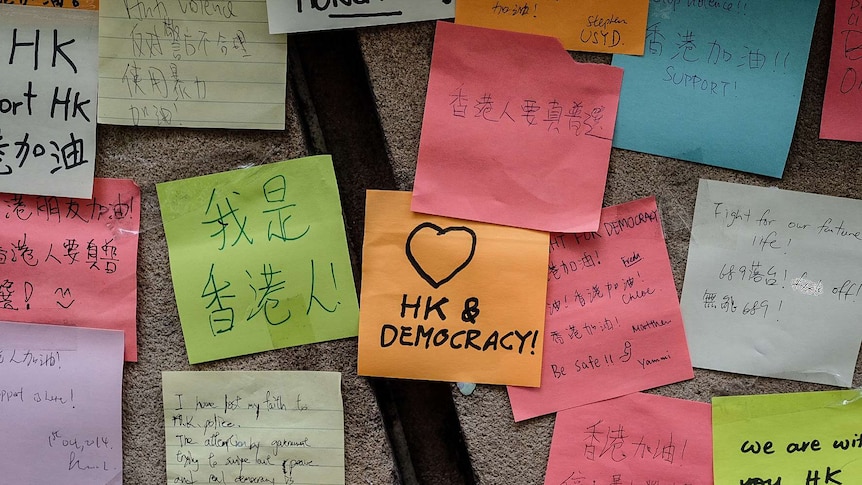 HK
port HK
加油
Violence
反對警方不合理
使用暴力
加油!
加油!
Stephen
USYD.
Stop violence!!
香港加油!!
SUPPORT!
香港人要真普選
港朋友加油!
香港人要真普
我是
香港人!
HK &
DEMOCRACY!
FOR DEMOCRACY
港加油!
油! 香港加油! Chloe
香港加油! Matthew
Be safe!! Yammi
Fight for our future
life!
689落台! off!
無能689!
人加油!
support
1st Oct, 2014.
I have lost my faith to
HK police.
The attention by government
trying to
and real democracy is
香港加油!
we are with
you HK